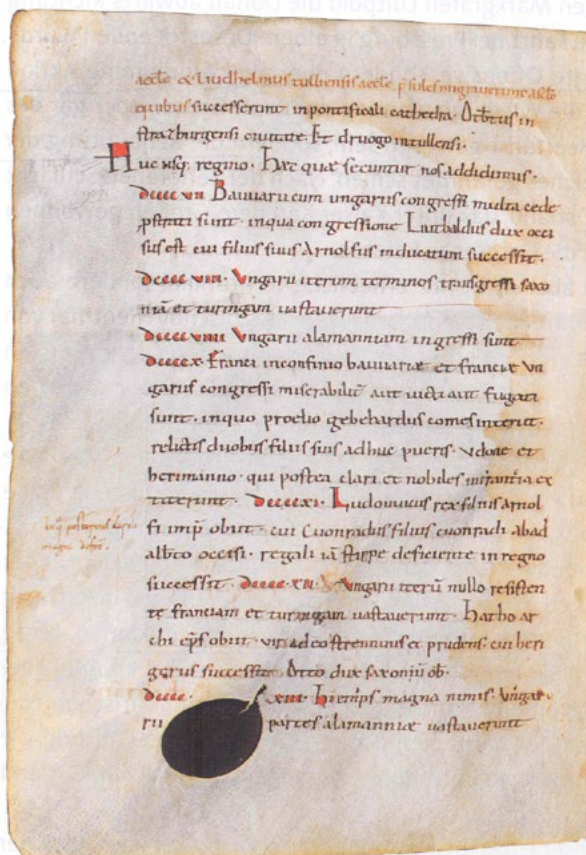 aeccle & Liudhelmus tulliensis aeccle p̄sules migraverunt a sc̄lo
e quibus successerunt in pontificali cathedra. Otb̄tus in
strazburgensi civitate. Et druogo in tullensi.
Huc usq; regino. Haec quae secuntur nos addidimus.
dcccc vii Bauuarii cum ungariis congressi multa cede
p̄strati sunt. in qua congressione Liutbaldus dux occi
sus est cui filius suus Arnolfus in ducatum successit.
dcccc viii. Ungarii iterum terminos transgressi saxo
niā et turingiam vastaverunt
dcccc viiii Ungarii alamanniam ingressi sunt
dcccc x. Franci in confinio bauuariae et franciae un
gariis congressi miserabilit̄ aut victi aut fugati
sunt. in quo proelio gebehardus comes interiit.
relictis duobus filiis suis adhuc pueris. udone et
herimanno. qui postea clari et nobiles in frantia ex
titerunt. dcccc xi. Ludouuicus rex filius arnol
in q̄ posterius
magni
fi imp̄ obiit. cui Cuonradus filius cuonradi ab ad
alb̄to occisi. regali iā stirpe deficiente in regno
successit. dcccc xii. Ungarii iterū nullo resisten
te franciam et turingiam vastaverunt. Hatho ar
chi ep̄s obiit. vir adeo strennuus et prudens. cui heri
gerus successit. Otto dux saxoniū ob̄.
dcccc. xiii. Hiemps magna nimis. Ungar
rii partes alamanniae vastaverunt